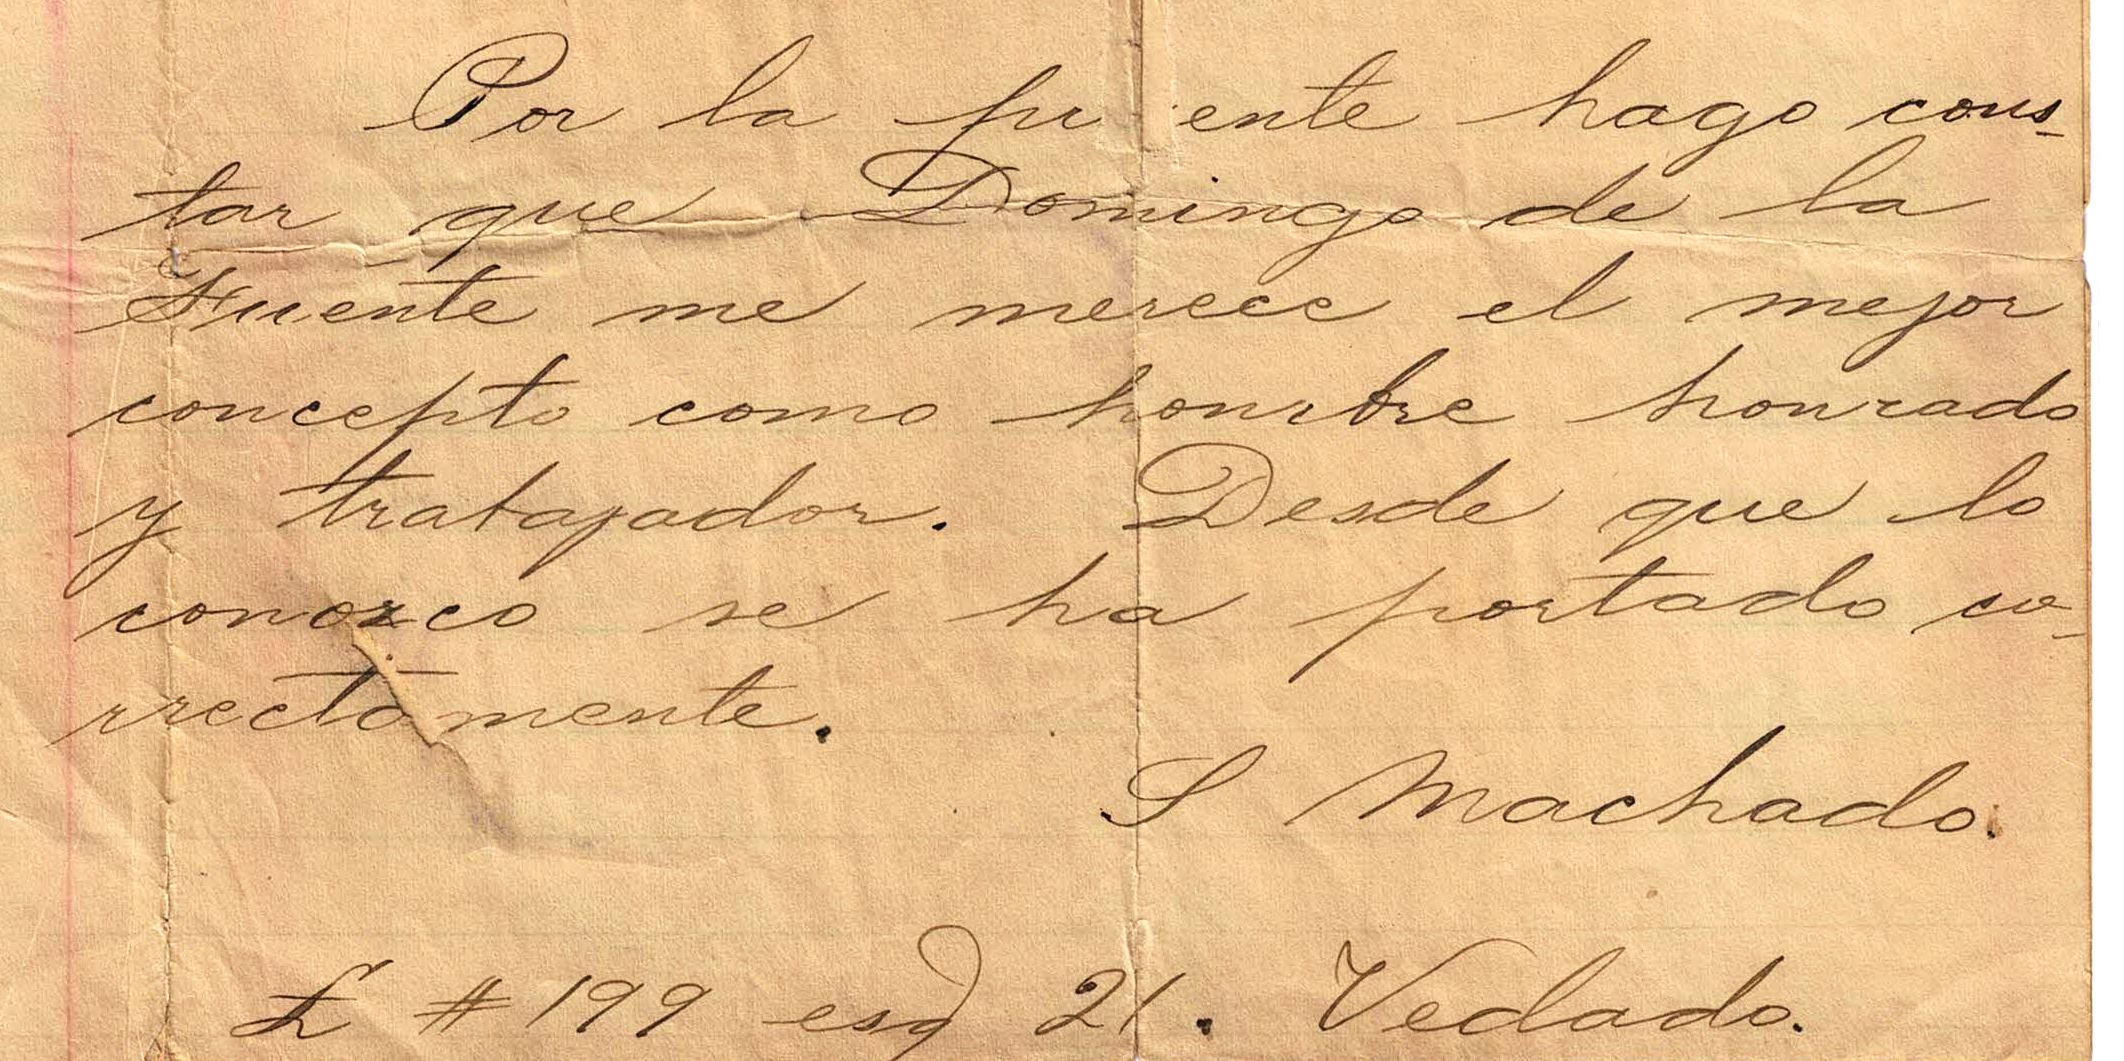 Por la pr ente hago cons-
tar que Domingo de la
Fuente me merece el mejor
concepto como hombre honrado
y trabajador. Desde que lo
conozco se ha portado co-
rrectamente.
S Machado.
# 199 esq 21. Vedado.